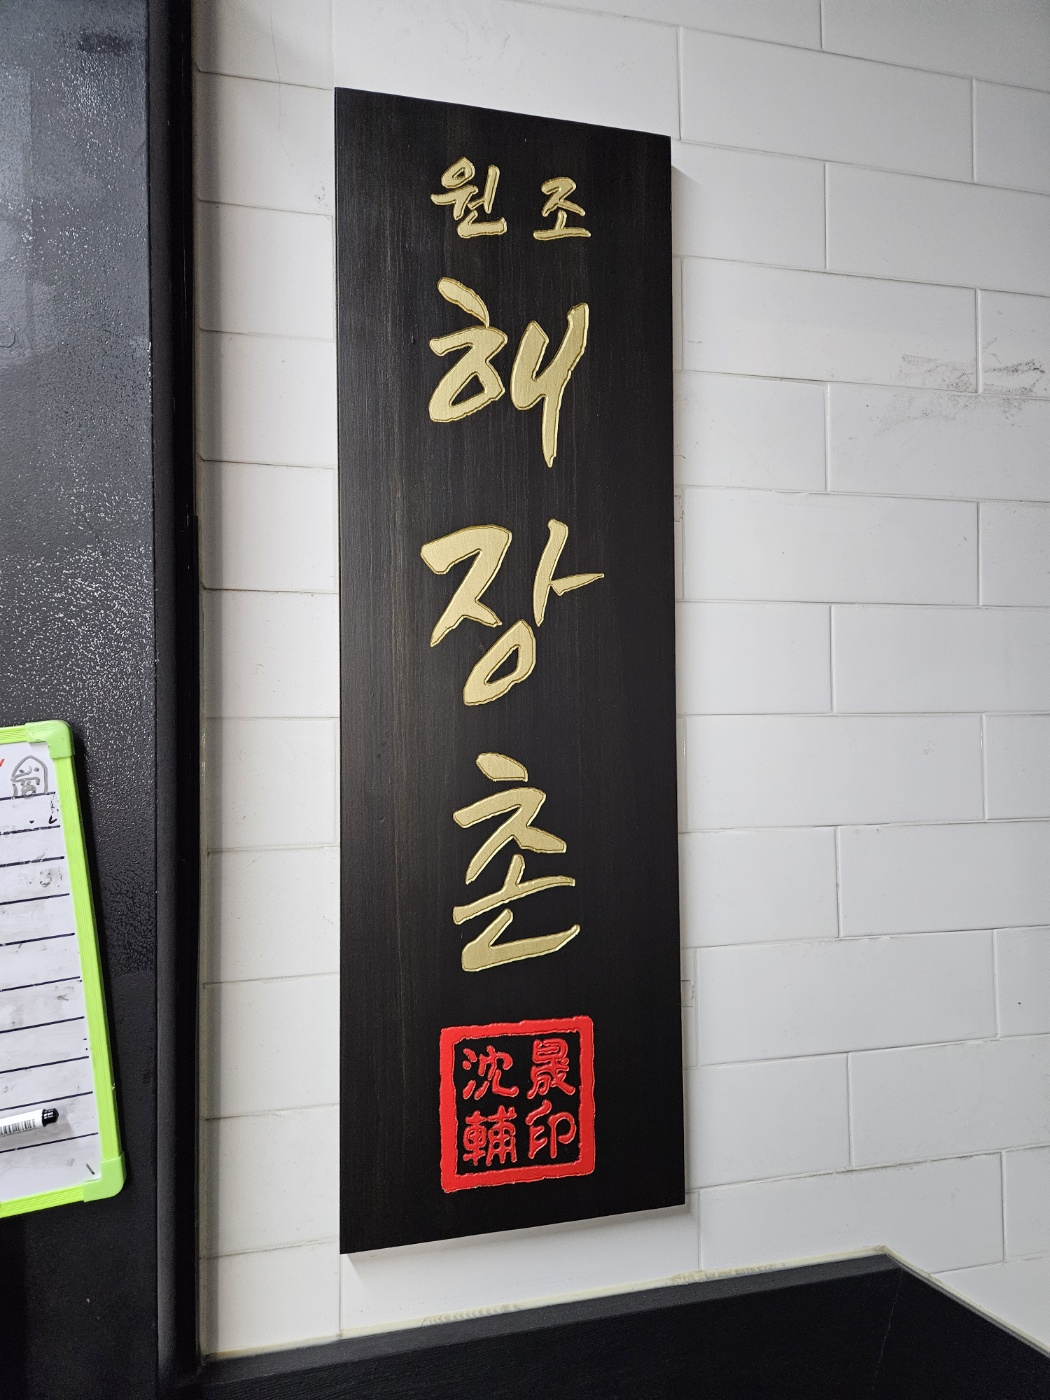 원조
해
장
촌
沈晟
輔印